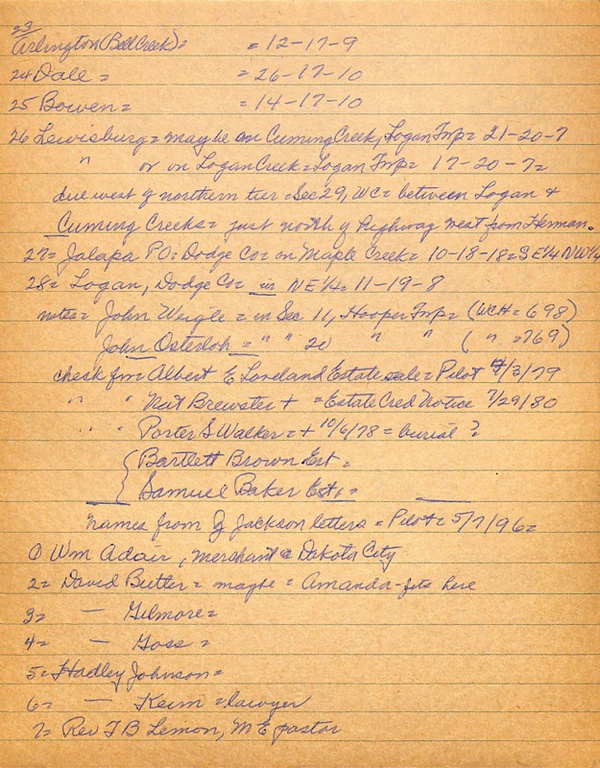 23
Arlington (Bell Creek) = = 12-17-9
24 Dale = = 26-17-10
25 Bowen = = 14-17-10
26 Lewisburg = maybe on Cuming Creek, Logan Twp = 21-20-7
" or on Logan Creek = Logan Twp = 17-20-7 =
due west of northern tier = Sec 29, WC = between Logan +
Cuming Creeks = just north of highway west from Herman.
27 = Jalapa PO = Dodge Co = on Maple Creek = 10-18-18 = SE¼ NW¼
28 = Logan, Dodge Co = in NE¼ = 11-19-8
notes = John Weigle = in Sec 11, Hooper Twp = (WCH = 698)
John Osterloh = " " 20 " " ( " = 769)
check for Albert E Loveland Estate sale = Pilot 4/3/79
" " Nat Brewster + = Estate Cred Notice 7/29/80
" " Porter S Walker = + 10/6/78 = burial ?
Bartlett Brown Est =
Samuel Baker Est. =
names from J Jackson letters = Pilot = 5/7/96 =
0 Wm Adair, merchant @ Dakota City
2 = David Butler = maybe = Amanda - fits here
3 = — Gilmore =
4 = — Goss =
5 = Hadley Johnson =
6 = — Keim = lawyer
7 = Rev T B Lemon, M E pastor